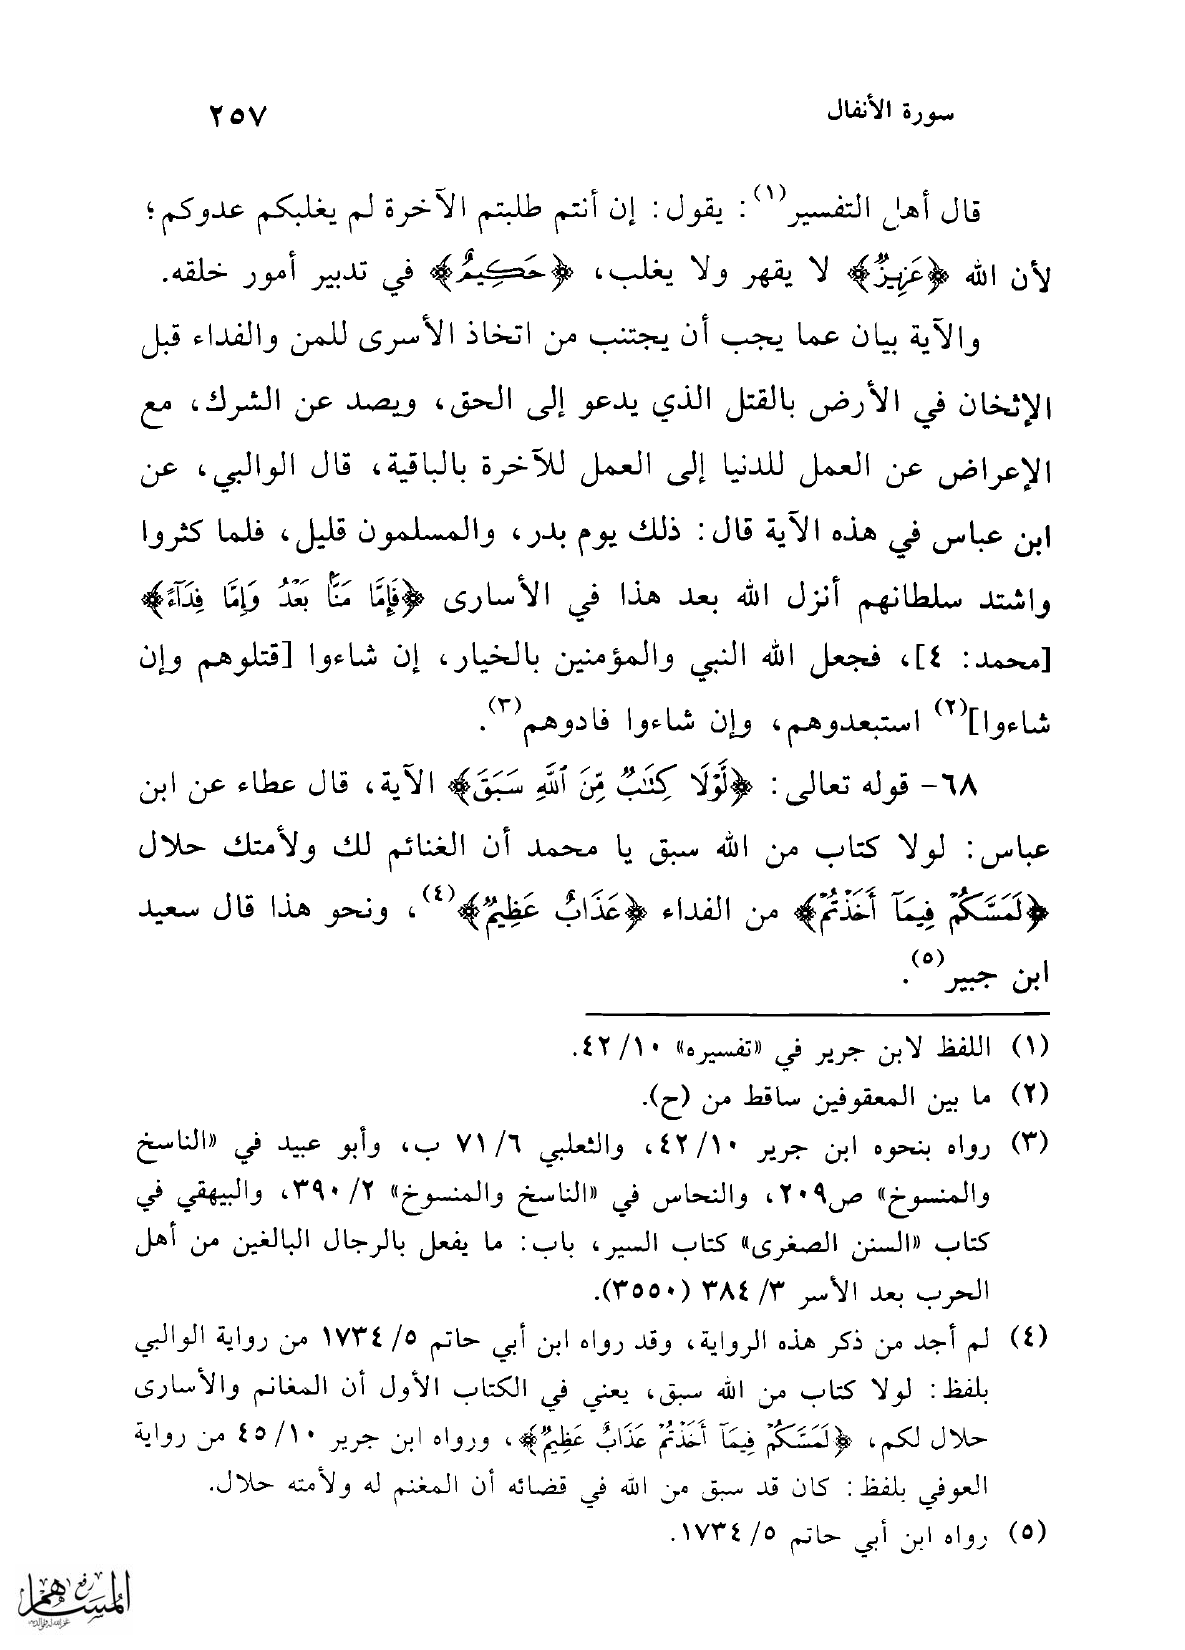 سورة الأنفال ٢٥٧
قال أهل التفسير(١): يقول: إن أنتم طلبتم الآخرة لم يغلبكم عدوكم؛
لأن الله ﴿عَزِيزٌ﴾ لا يقهر ولا يغلب، ﴿حَكِيمٌ﴾ في تدبير أمور خلقه.
والآية بيان عما يجب أن يجتنب من اتخاذ الأسرى للمن والفداء قبل
الإثخان في الأرض بالقتل الذي يدعو إلى الحق، ويصد عن الشرك، مع
الإعراض عن العمل للدنيا إلى العمل للآخرة بالباقية، قال الوالبي، عن
ابن عباس في هذه الآية قال: ذلك يوم بدر، والمسلمون قليل، فلما كثروا
واشتد سلطانهم أنزل الله بعد هذا في الأسارى ﴿فَإِمَّا مَنًّا بَعْدُ وَإِمَّا فِدَآءً﴾
[محمد: ٤]، فجعل الله النبي والمؤمنين بالخيار، إن شاءوا [قتلوهم وإن
شاءوا](٢) استبعدوهم، وإن شاءوا فادوهم(٣).
٦٨- قوله تعالى: ﴿لَّوْلَا كِتَٰبٌ مِّنَ ٱللَّهِ سَبَقَ﴾ الآية، قال عطاء عن ابن
عباس: لولا كتاب من الله سبق يا محمد أن الغنائم لك ولأمتك حلال
﴿لَمَسَّكُمْ فِيمَآ أَخَذْتُمْ﴾ من الفداء ﴿عَذَابٌ عَظِيمٌ﴾(٤)، ونحو هذا قال سعيد
ابن جبير(٥).
(١) اللفظ لابن جرير في «تفسيره» ١٠/ ٤٢.
(٢) ما بين المعقوفين ساقط من (ح).
(٣) رواه بنحوه ابن جرير ١٠/ ٤٢، والثعلبي ٦/ ٧١ ب، وأبو عبيد في «الناسخ
والمنسوخ» ص٢٠٩، والنحاس في «الناسخ والمنسوخ» ٢/ ٣٩٠، والبيهقي في
كتاب «السنن الصغرى» كتاب السير، باب: ما يفعل بالرجال البالغين من أهل
الحرب بعد الأسر ٣/ ٣٨٤ (٣٥٥٠).
(٤) لم أجد من ذكر هذه الرواية، وقد رواه ابن أبي حاتم ٥/ ١٧٣٤ من رواية الوالبي
بلفظ: لولا كتاب من الله سبق، يعني في الكتاب الأول أن المغانم والأسارى
حلال لكم، ﴿لَمَسَّكُمْ فِيمَآ أَخَذْتُمْ عَذَابٌ عَظِيمٌ﴾، ورواه ابن جرير ١٠/ ٤٥ من رواية
العوفي بلفظ: كان قد سبق من الله في قضائه أن المغنم له ولأمته حلال.
(٥) رواه ابن أبي حاتم ٥/ ١٧٣٤.
رفع
المساهم